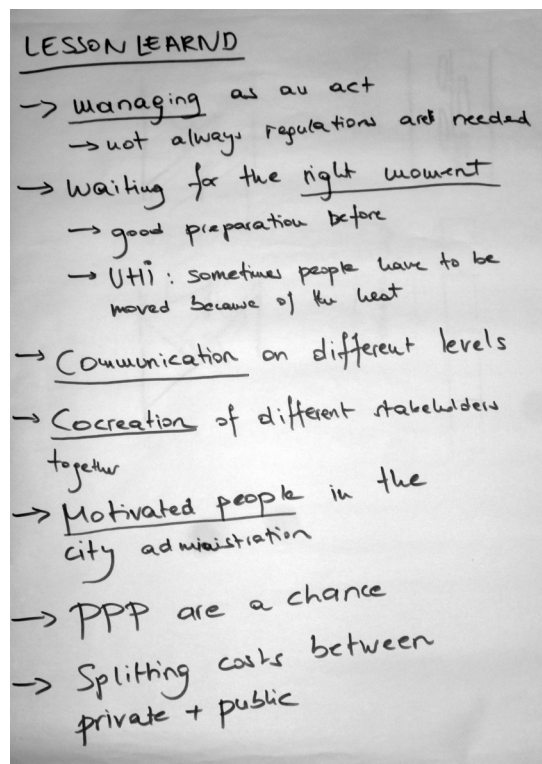 LESSON LEARND
→ managing as an act
→ not always regulations are needed
→ waiting for the right moment
→ good preparation before
→ UHI : sometimes people have to be
moved because of the heat
→ Communication on different levels
→ Cocreation of different stakeholders
together
→ Motivated people in the
city administration
→ PPP are a chance
→ Splitting costs between
private + public